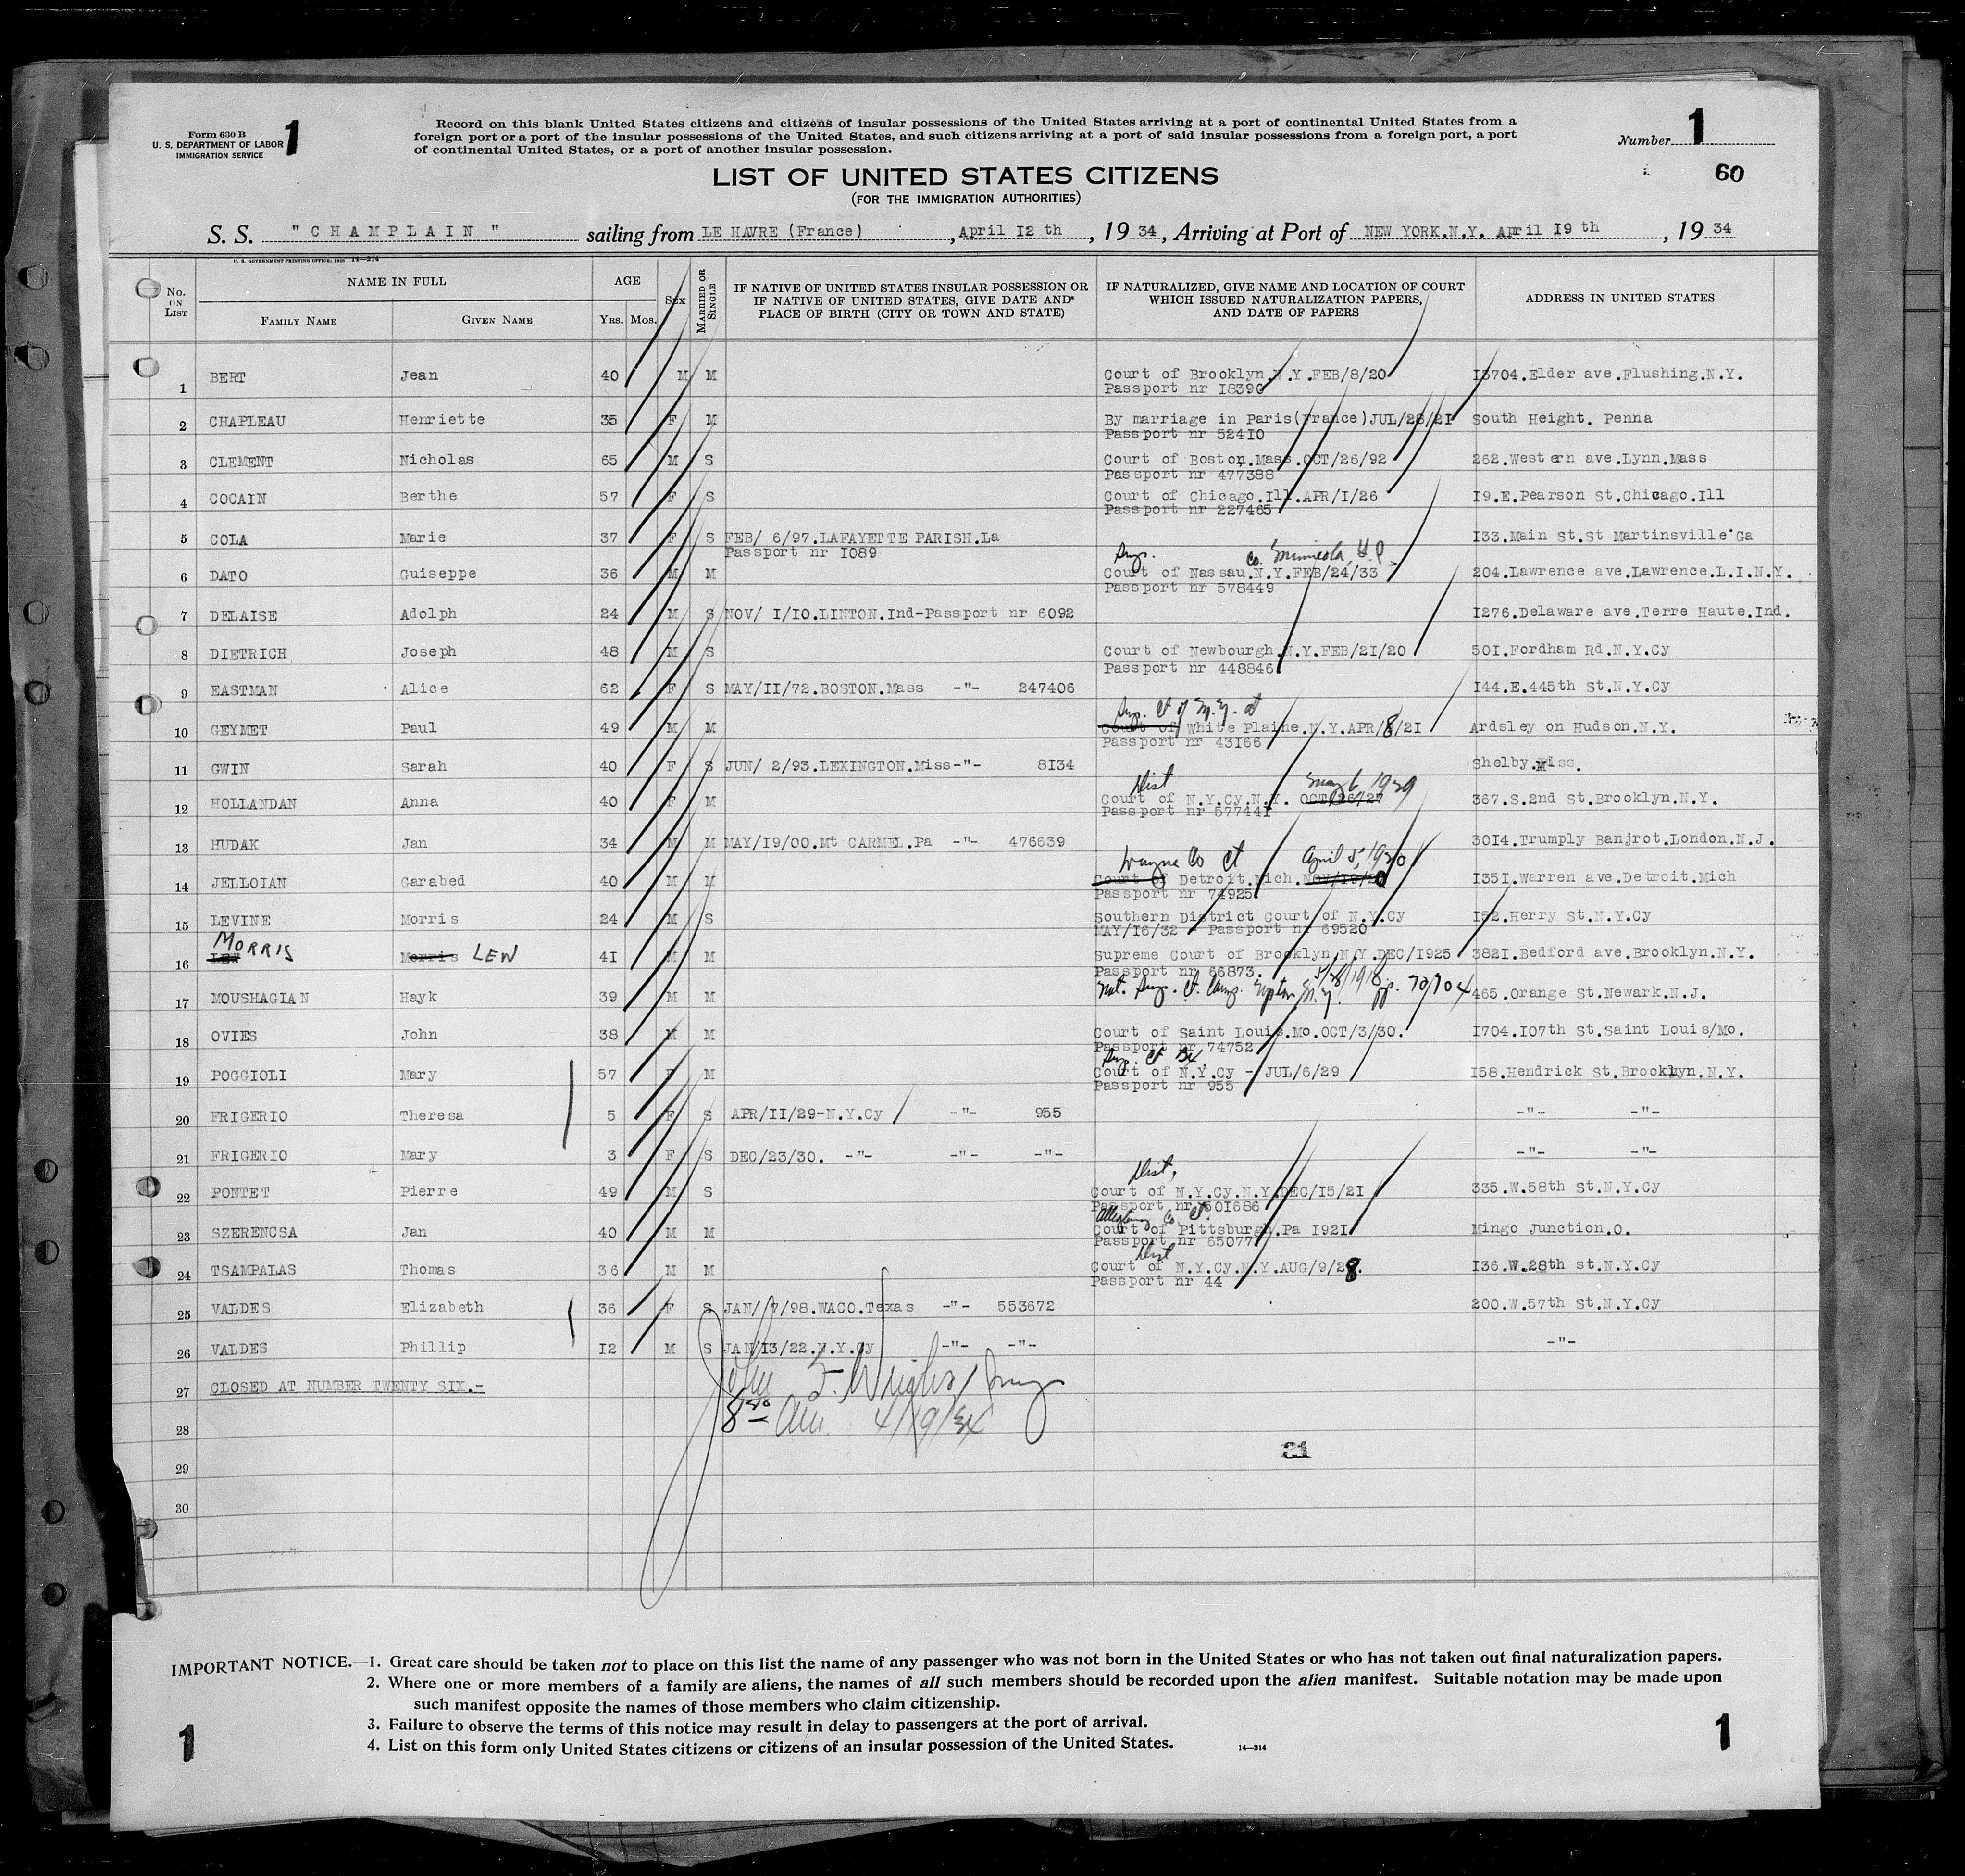 Form 630 B
U. S. DEPARTMENT OF LABOR
IMMIGRATION SERVICE
1
Record on this blank United States citizens and citizens of insular possessions of the United States arriving at a port of continental United States from a
foreign port or a port of the insular possessions of the United States, and such citizens arriving at a port of said insular possessions from a foreign port, a port
of continental United States, or a port of another insular possession.
Number 1
60
LIST OF UNITED STATES CITIZENS
(FOR THE IMMIGRATION AUTHORITIES)
S. S. "CHAMPLAIN" sailing from LE HAVRE (France), April I2 th, 1934, Arriving at Port of NEW YORK.N.Y. April I9 th, 1934
U. S. GOVERNMENT PRINTING OFFICE: 14—214
No. ON LIST NAME IN FULL AGE Sex MARRIED OR SINGLE IF NATIVE OF UNITED STATES INSULAR POSSESSION OR IF NATIVE OF UNITED STATES, GIVE DATE AND PLACE OF BIRTH (CITY OR TOWN AND STATE) IF NATURALIZED, GIVE NAME AND LOCATION OF COURT WHICH ISSUED NATURALIZATION PAPERS, AND DATE OF PAPERS ADDRESS IN UNITED STATES
FAMILY NAME GIVEN NAME YRS. MOS.
1 BERT Jean 40 M M Court of Brooklyn.N.Y.FEB/8/20 I3704.Elder ave.Flushing.N.Y.
Passport nr I8390
2 CHAPLEAU Henriette 35 F M By marriage in Paris(France)JUL/28/2I South Height. Penna
Passport nr 524I0
3 CLEMENT Nicholas 65 M S Court of Boston.Mass.OCT/26/92 262.Western ave.Lynn.Mass
Passport nr 477388
4 COCAIN Berthe 57 F S Court of Chicago.Ill.APR/I/26 I9.E.Pearson St.Chicago.Ill
Passport nr 227465
5 COLA Marie 37 F S FEB/ 6/97.LAFAYETTE PARISH.La I33.Main St.St Martinsville Ga
Passport nr I089
Sup. Co. Mineola, L.I.
6 DATO Guiseppe 36 M M Court of Nassau.N.Y.FEB/24/33 204.Lawrence ave.Lawrence.L.I.N.Y.
Passport nr 578449
7 DELAISE Adolph 24 M S NOV/ I/IO.LINTON.Ind-Passport nr 6092 I276.Delaware ave.Terre Haute.Ind.
8 DIETRICH Joseph 48 M S Court of Newbourgh.N.Y.FEB/2I/20 50I.Fordham Rd.N.Y.Cy
Passport nr 448846
9 EASTMAN Alice 62 F S MAY/II/72.BOSTON.Mass -"- 247406 I44.E.445th St.N.Y.Cy
Sup. Ct of N.Y. at
10 GEYMET Paul 49 M M Court of White Plaine.N.Y.APR/8/2I Ardsley on Hudson.N.Y.
Passport nr 43I66
11 GWIN Sarah 40 F S JUN/ 2/93.LEXINGTON.Miss-"- 8I34 Shelby.Miss.
Dist May 6 1929
12 HOLLANDAN Anna 40 F M Court of N.Y.Cy.N.Y. OCT/26/27 367.S.2nd St.Brooklyn.N.Y.
Passport nr 57744I
13 HUDAK Jan 34 M M MAY/I9/00.Mt CARMEL.Pa -"- 476639 30I4.Trumply Banjrot.London.N.J.
Wayne Co Ct April 5, 1920
14 JELLOIAN Garabed 40 M M Court of Detroit.Mich. NOV/I9/20 I35I.Warren ave.Detroit.Mich
Passport nr 74925
15 LEVINE Morris 24 M S Southern District Court of N.Y.Cy I52.Herry St.N.Y.Cy
MAY/I6/32 - Passport nr 69520
MORRIS
16 LEW Morris LEW 4I M M Supreme Court of Brooklyn.N.Y.DEC/I925 382I.Bedford ave.Brooklyn.N.Y.
Passport nr 66873.
17 MOUSHAGIAN Hayk 39 M M Nat. Sup. Ct. Camp Upton N.Y. 5/28/1918 pp. 70704 465.Orange St.Newark.N.J.
18 OVIES John 38 M M Court of Saint Louis.Mo.OCT/3/30. I704.I07th St.Saint Louis/Mo.
Passport nr 74752
Sup. Ct Bx
19 POGGIOLI Mary 57 F M Court of N.Y.Cy - JUL/6/29 I58.Hendrick St.Brooklyn.N.Y.
Passport nr 955
20 FRIGERIO Theresa 5 F S APR/II/29-N.Y.Cy -"- 955 -"- -"-
21 FRIGERIO Mary 3 F S DEC/23/30. -"- -"- -"- -"- -"-
Dist,
22 PONTET Pierre 49 M S Court of N.Y.Cy.N.Y.DEC/I5/2I 335.W.58th St.N.Y.Cy
Passport nr 50I686
Allegheny Co Ct.
23 SZERENCSA Jan 40 M M Court of Pittsburgh.Pa I92I Mingo Junction.O.
Passport nr 65077
Dist
24 TSAMPALAS Thomas 36 M M Court of N.Y.Cy.N.Y.AUG/9/28. I36.W.28th st.N.Y.Cy
Passport nr 44
25 VALDES Elizabeth 36 F S JAN/ 7/98.WACO.Texas -"- 553672 200.W.57th St.N.Y.Cy
26 VALDES Phillip I2 M S JAN/I3/22.N.Y.Cy -"- -"- -"-
27 CLOSED AT NUMBER TWENTY SIX.-
John F. Wright Insp
28 8 AM 4/19/34
31
29
30
IMPORTANT NOTICE.—1. Great care should be taken not to place on this list the name of any passenger who was not born in the United States or who has not taken out final naturalization papers.
2. Where one or more members of a family are aliens, the names of all such members should be recorded upon the alien manifest. Suitable notation may be made upon
such manifest opposite the names of those members who claim citizenship.
3. Failure to observe the terms of this notice may result in delay to passengers at the port of arrival.
4. List on this form only United States citizens or citizens of an insular possession of the United States.
14—214
1
1